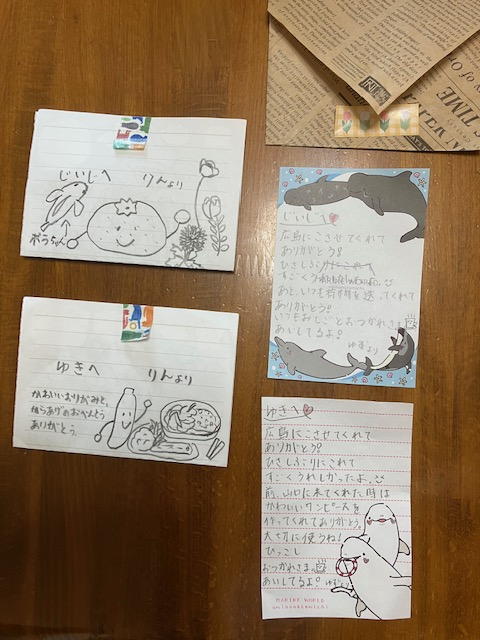 じいじへ りんより
ボラちゃん
ゆきへ りんより
かわいいおりがみと、
からあげのおべんとう
ありがとう。
TIME
じいじへ
広島にこさせてくれて
ありがとう!
ひさしぶりにこれて
すごくうれしかったよ。
あと、いつも荷物を送ってくれて
ありがとう!
いつもおしごとおつかれさま
あいしてるよ!
ゆずより
ゆきへ
広島にこさせてくれて
ありがとう!
ひさしぶりにこれて
すごくうれしかったよ。
前、山口に来てくれた時は
かわいいワンピースを
作ってくれてありがとう。
大切に使うね!
ひっこし
おつかれさま。
あいしてるよ! ゆずより
MARINE WORLD
uminonakamichi